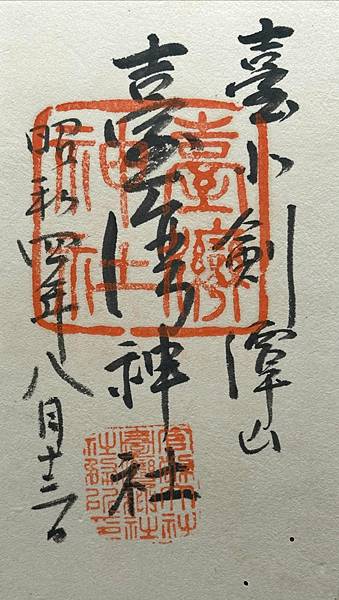 臺北劍潭山
臺灣神社
昭和四年八月十三日
臺灣
神社
官幣大社
臺灣神社
社務所印